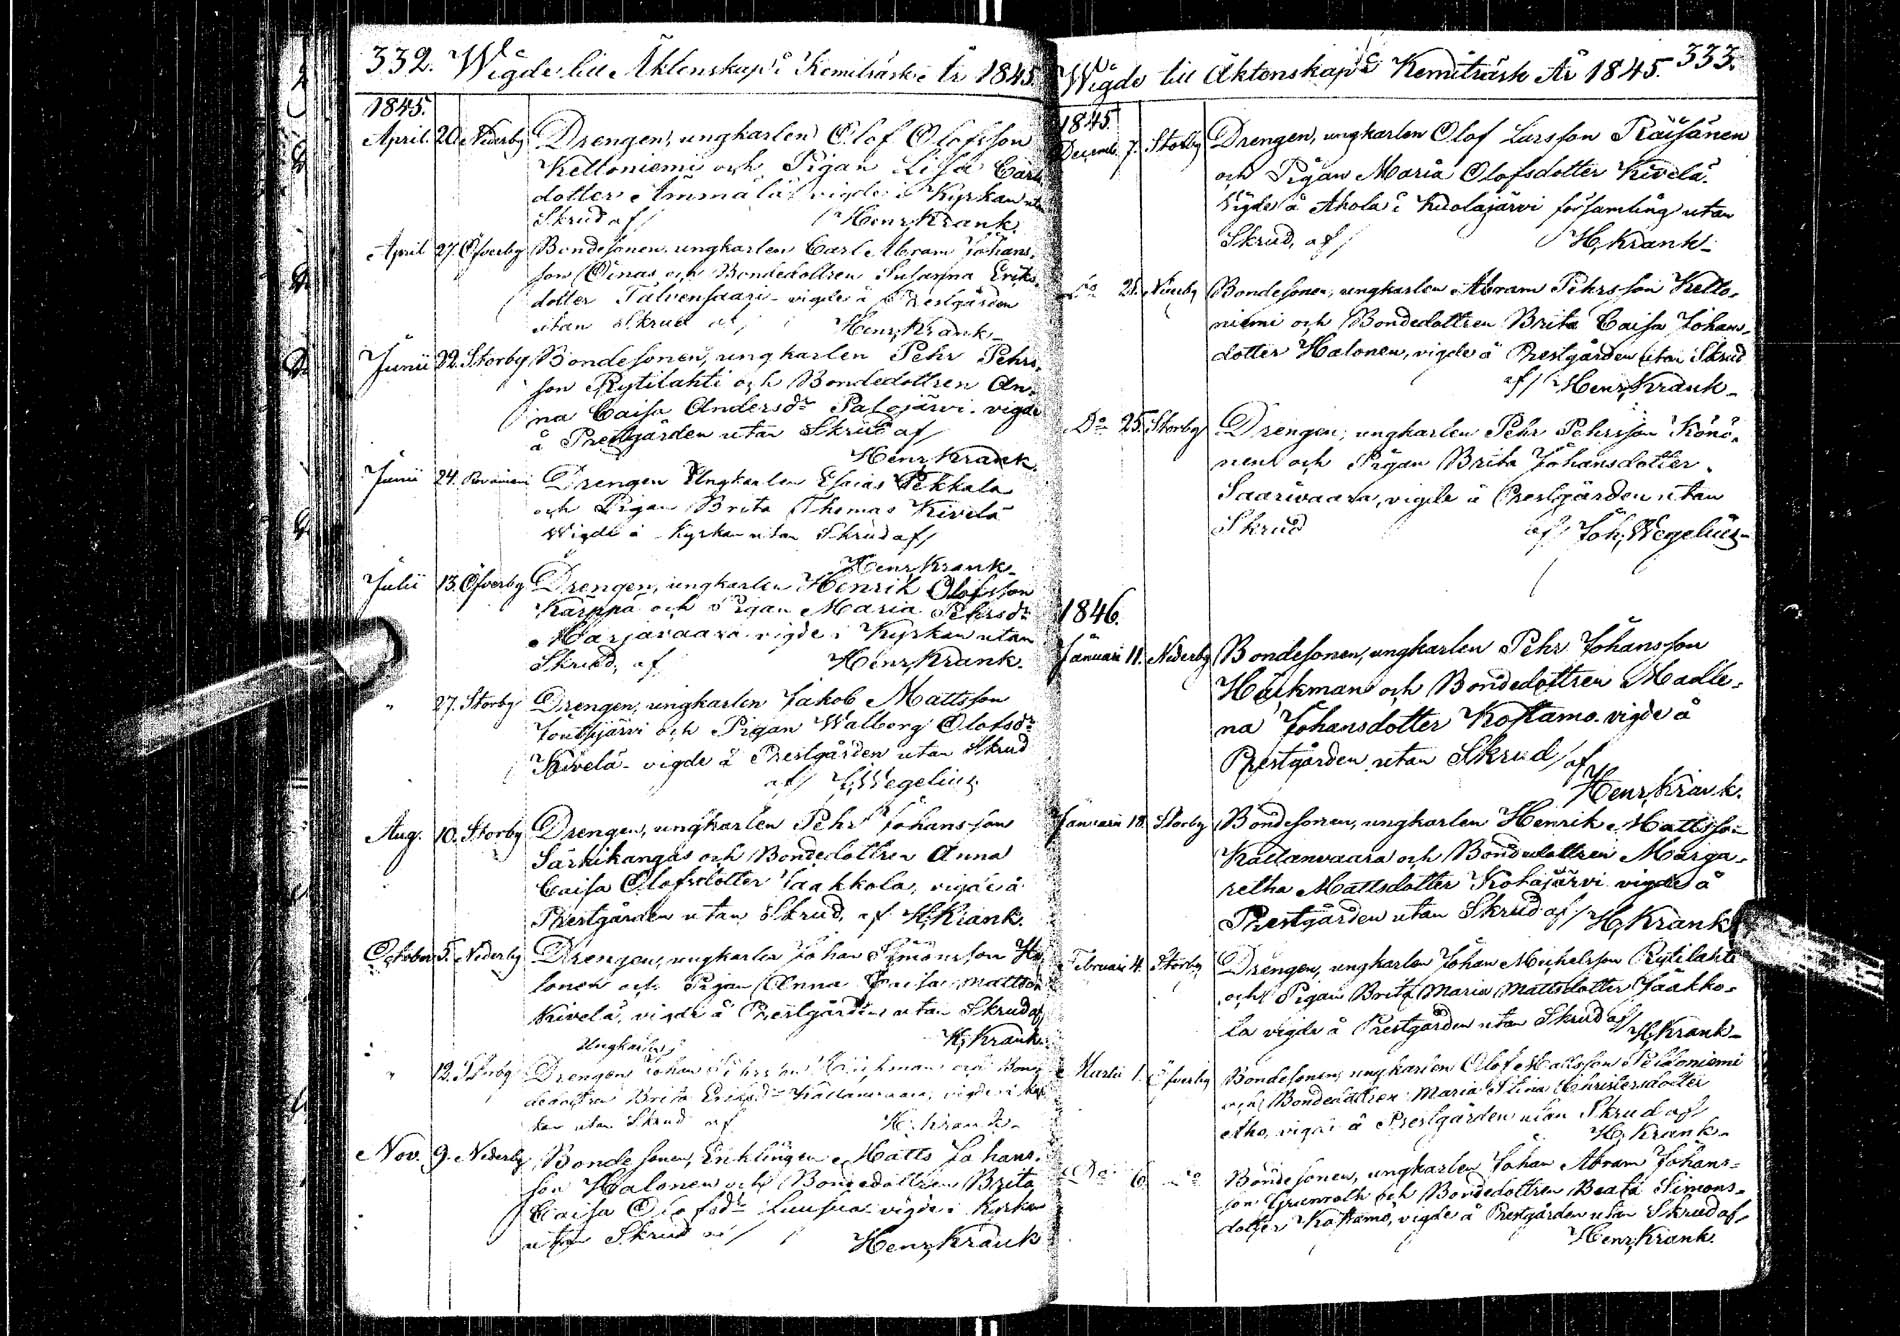 332. Wigde till Äktenskap i Kemiträsk År 1845.
1845.
April. 20. Nederby Drengen, ungkarlen Olof Olofsson
Keltoniemi och Pigan Lisa Carls
dotter Ämmälä vigde i Kyrkan utan
Skrud af / Henr, Krank.
April 27. Öfverby Bondesonen, ungkarlen Carl Abram Johans,
son Oinas och Bondedottren Susanna Eriks,
dotter Talvensaari - vigde å Prestgården
utan Skrud af / Henr, Krank -
Junii 22. Storby Bondesonen, ungkarlen Pehr Pehrs,
son Rytilahti och Bondedottren An,
na Caisa Andersdr Palojärvi - vigde
å Prestgården utan Skrud af /
Henr, Krank.
Junii 24. Rovaniemi Drengen Ungkarlen Esaias Pekkala
och Pigan Brita Thomas Kivelä
Wigde i Kyrkan utan Skrud af /
Henr, Krank -
Julii 13. Öfverby Drengen, ungkarlen Henrik Olofsson
Kärppä och Pigan Maria Pehrsdr
Harjavaara vigde i Kyrkan utan
Skrud, af Henr, Krank.
" 27. Storby Drengen, ungkarlen Jakob Mattsson
Joutsijärvi och Pigan Walborg Olofsdr
Kivelä - vigde å Prestgården utan Skrud
af / Wegelius
Aug. 10. Storby Drengen, ungkarlen Pehr Johansson
Särkikangas och Bondedottren Anna
Caisa Olofsdotter Jaakkola, vigde å
Prestgården utan Skrud, af H, Krank.
October 5. Nederby Drengen, ungkarlen Johan Simonsson Ha,
lonen och Pigan Anna Caisa Mattsdr
Kivelä, vigde å Prestgården utan Skrud af
H, Krank.
Ungkarlen
" 12. Drengen Johan Pehrsson och Bon,
dedottren Brita Eriksdr Kallanvaara, vigde i Kyr,
kan utan Skrud af H. Krank -
Nov. 9. Nederby Bondesonen, Enklingen Matts Johans,
son Halonen och Bondedottren Brita
Caisa Olofsdr Luusua vigde i Kyrkan
utan Skrud af / Henr, Krank
Wigde till Äktenskap i Kemiträsk År 1845. 333.
1845.
Decemb. 7. Storby Drengen, ungkarlen Olof Larsson Räisänen
och Pigan Maria Olofsdotter Kivelä.
Vigde å Ahola i Kuolajärvi församling utan
Skrud, af / H, Krank -
Do 21. Drengen Bondesonen, ungkarlen Abram Pehrsson Kelto,
niemi och Bondedottren Brita Caisa Johans,
dotter Halonen, vigde å Prestgården utan Skrud
af / Henr, Krank -
Do 25. Storby Drengen, ungkarlen Pehr Pehrsson Könö,
nen och Pigan Brita Johansdotter
Saarivaara, vigde å Prestgården utan
Skrud af / Joh, Wegelius -
1846.
Januari 11. Nederby Bondesonen, ungkarlen Pehr Johansson
Häikman och Bondedottren Madle,
na Johansdotter Kostamo vigde å
Prestgården utan Skrud / af
Henr, Krank.
Januari 18. Storby Bondesonen, ungkarlen Henrik Mattsson
Kallanvaara och Bondedottren Marga,
retha Mattsdotter Kotajärvi vigde å
Prestgården utan Skrud af / H, Krank
Februari 4. Storby Drengen, ungkarlen Johan Michelsson Rytilahti
och Pigan Brita Maria Mattsdotter Jaakko,
la vigde å Prestgården utan Skrud af /
H, Krank -
Martii 1. Öfverby Bondesonen, ungkarlen Olof Mattsson Peldoniemi
och Bondedottren Maria Stina Christersdotter
Aho, vigde å Prestgården utan Skrud af /
H, Krank -
Do 6. Do Bondesonen, ungkarlen Johan Abram Johans,
son Grunroth och Bondedottren Beata Simons,
dotter Kostamo, vigde å Prestgården utan Skrud af /
Henr, Krank.